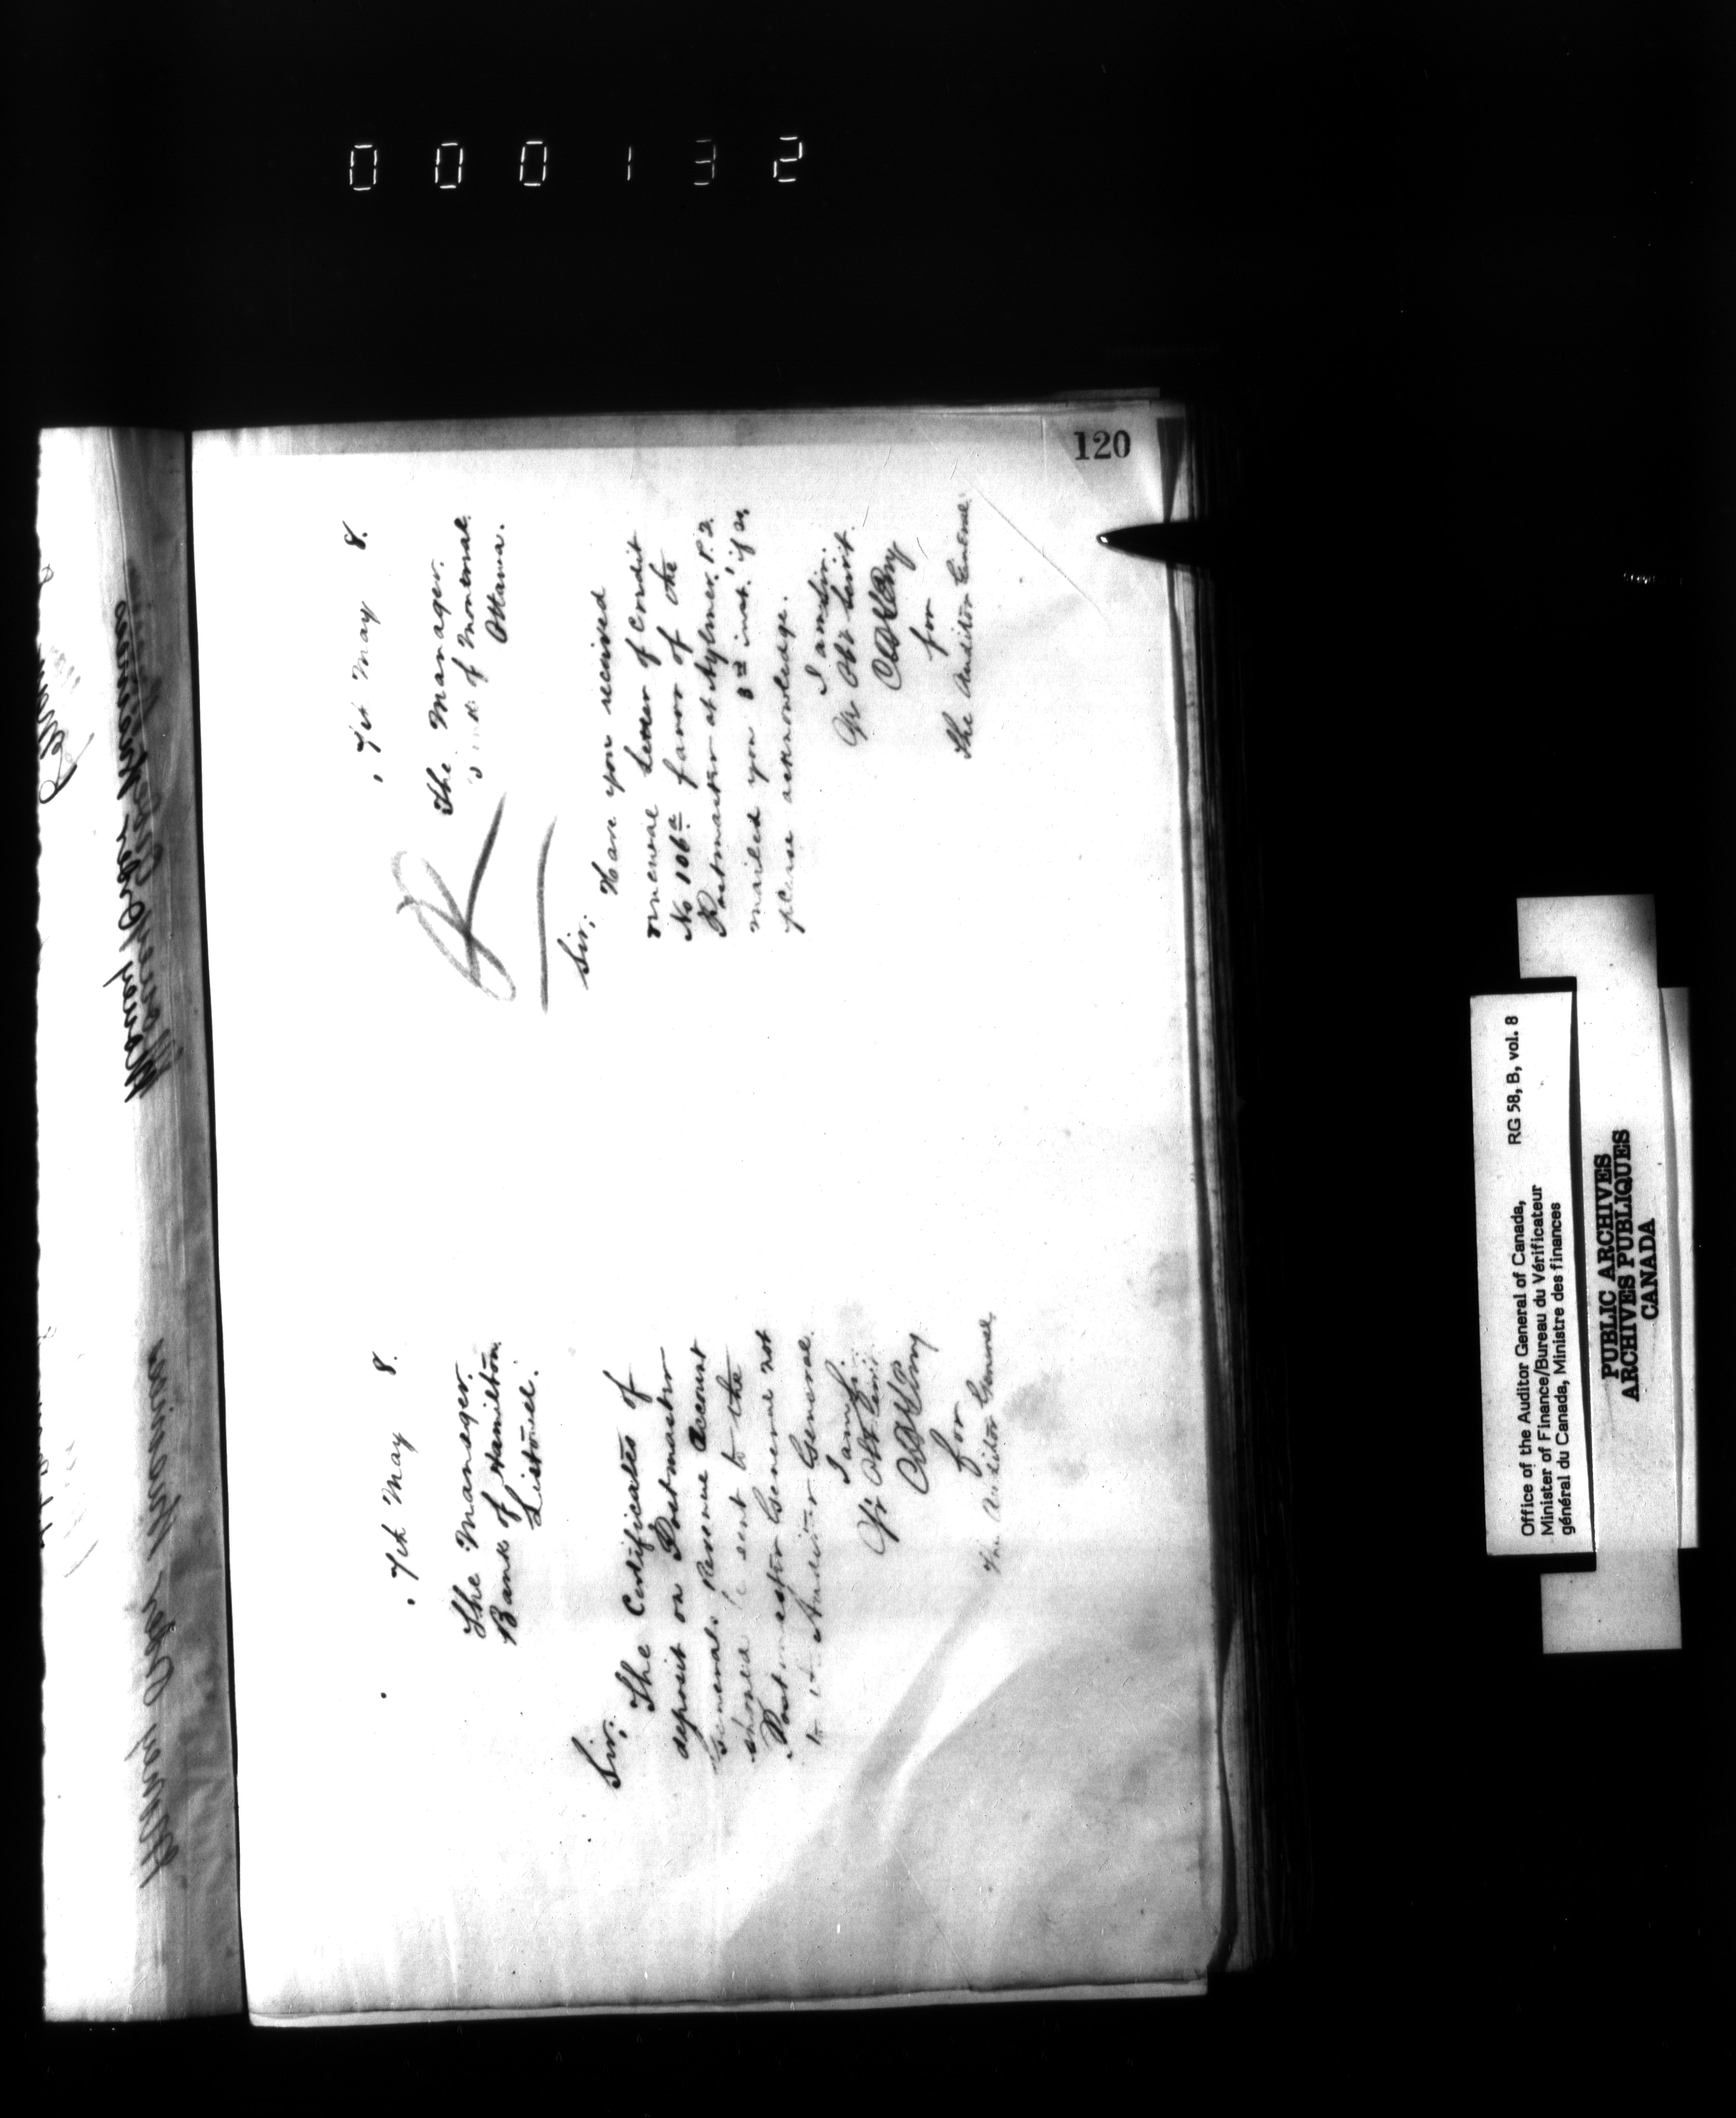 000132
120
7th May 8.
The Manager.
Bank of Hamilton
Listowel.
Sir;
The Certificates of
deposit on Postmaster
General's Revenue Account
should be sent to the
Postmaster General not
to the Auditor General.
I am Sir.
Yr Obt Servt.
for
The Auditor General.
7th May 8.
The Manager.
Bank of Montreal.
Ottawa.
Sir;
Have you received
renewal Letter of Credit
No 106a favor of the
Postmaster at Aylmer. P.2.
mailed you 3rd inst. if so,
please acknowledge.
I am Sir.
Yr Obt Servt.
for
The Auditor General.
Office of the Auditor General of Canada,
Minister of Finance/Bureau du Vérificateur
général du Canada, Ministre des finances
RG 58, B, vol. 8
PUBLIC ARCHIVES
ARCHIVES PUBLIQUES
CANADA